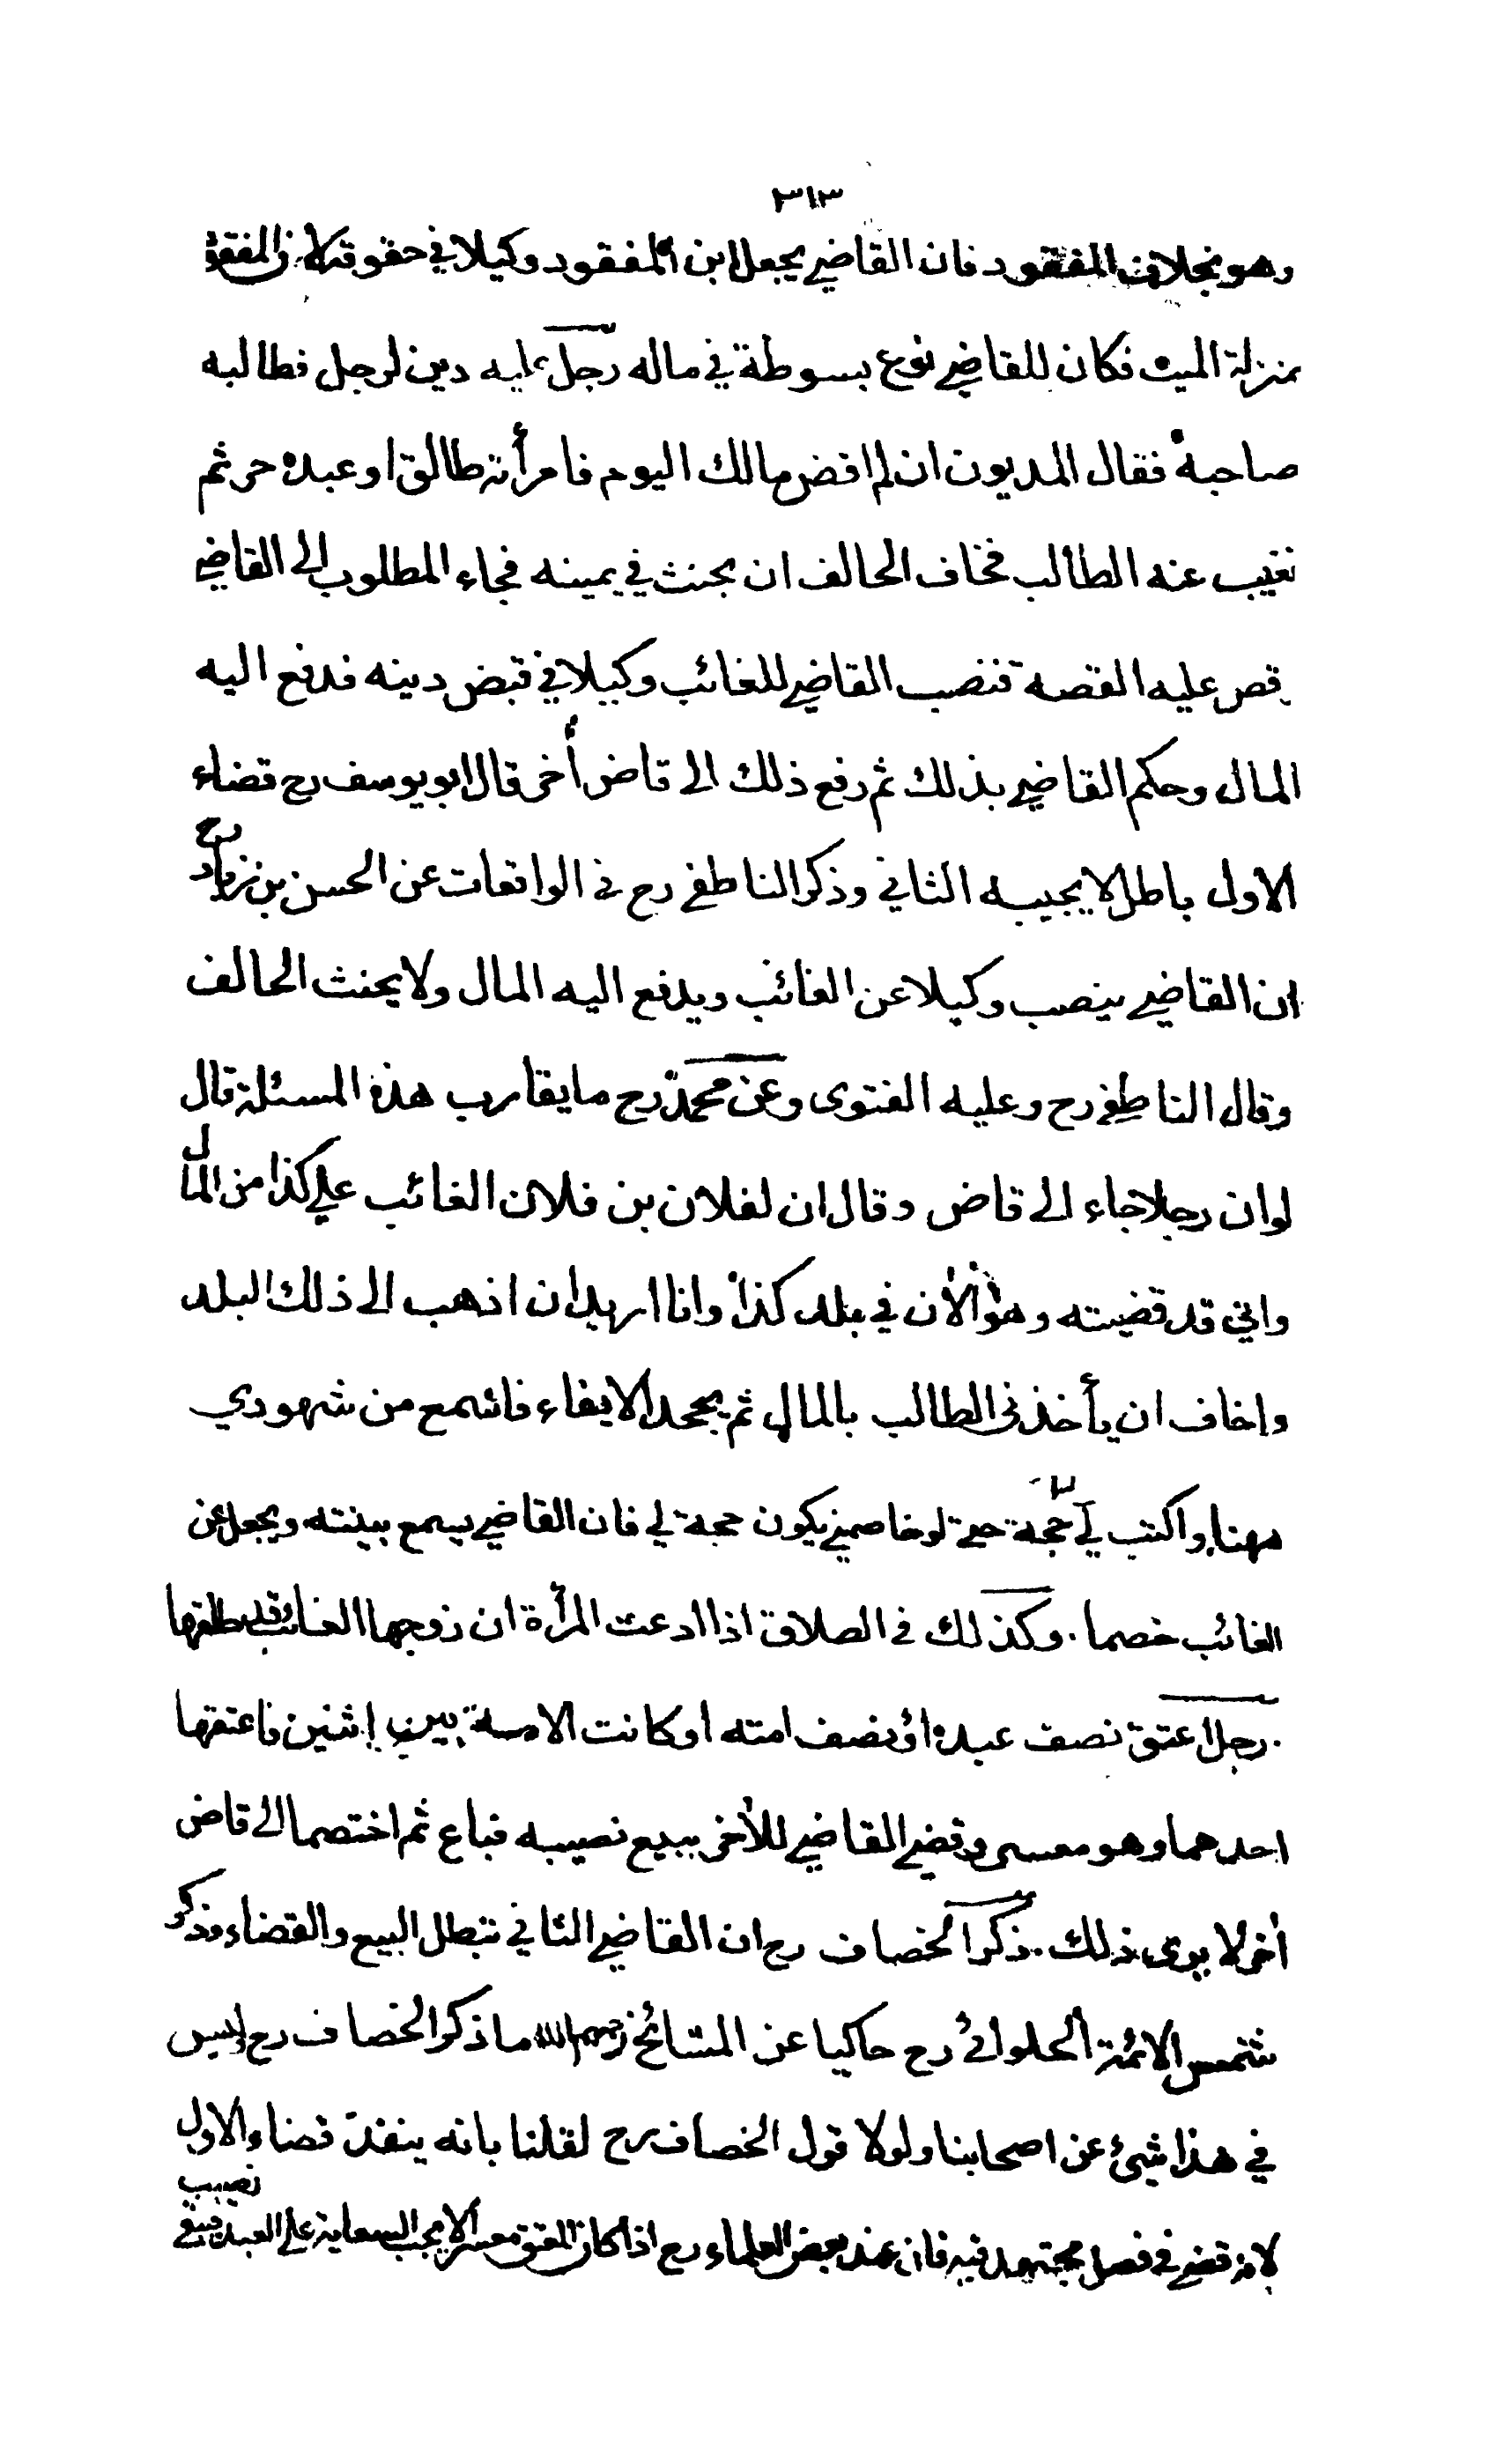 ٣١٣
وهو بخلاف المفقود فان القاضي يجعل ابن المفقود وكيلا في حقوقه لان المفقود
بمنزلة الميت فكان للقاضي نوع بسوطة في ماله رجل عليه دين لرجل فطالبه
صاحبه فقال المديون ان لم اقض مالك اليوم فامرأته طالق او عبده حر ثم
تغيب عنه الطالب فخاف الحالف ان يحنث في يمينه فجاء المطلوب الى القاضي
وقص عليه القصة فنصب القاضي للغائب وكيلا في قبض دينه فدفع اليه
المال وحكم القاضي بذلك ثم رفع ذلك الى قاض أخر قال ابو يوسف رح قضاء
الاول باطل لا يجيبه الثاني وذكر الناطفي رح في الواقعات عن الحسن بن زياد رح
ان القاضي ينصب وكيلا عن الغائب ويدفع اليه المال ولا يحنث الحالف
وقال الناطفي رح وعليه الفتوى وعن محمد رح ما يقارب هذه المسئلة قال
لو ان رجلا جاء الى قاض وقال ان لفلان بن فلان الغائب علي كذا من المال
واني قد قضيته وهو الأن في بلد كذا وانا اريد ان اذهب الى ذلك البلد
واخاف ان يأخذني الطالب بالمال ثم يجحد الايفاء فاسمع من شهودي
ههنا واكتب لي حجة حتى لو خاصمني يكون حجة لي فان القاضي يسمع بينته ويجعل عن
الغائب خصما . وكذلك في الطلاق اذا ادعت المرأة ان زوجها الغائب قد طلقها
رجل اعتق نصف عبده او نصف امته او كانت الامة بين اثنين فاعتقها
احدهما وهو معسر وقضي القاضي للأخر ببيع نصيبه فباع ثم اختصما الى قاض
أخر لا يرى ذلك . ذكر الخصاف رح ان القاضي الثاني يبطل البيع والقضاء وذكر
شمس الائمة الحلوائي رح حاكيا عن المشائخ رحمهم الله ما ذكر الخصاف رح ليس
في هذا شيئ عن اصحابنا ولولا قول الخصاف رح لقلنا بانه ينفذ قضاء الاول
لانه قضي في فصل مجتهد فيه فان عند بعض العلماء رح اذا كان المعتق معسرا لا يجب السعاية على العبد فيبقى نصيب